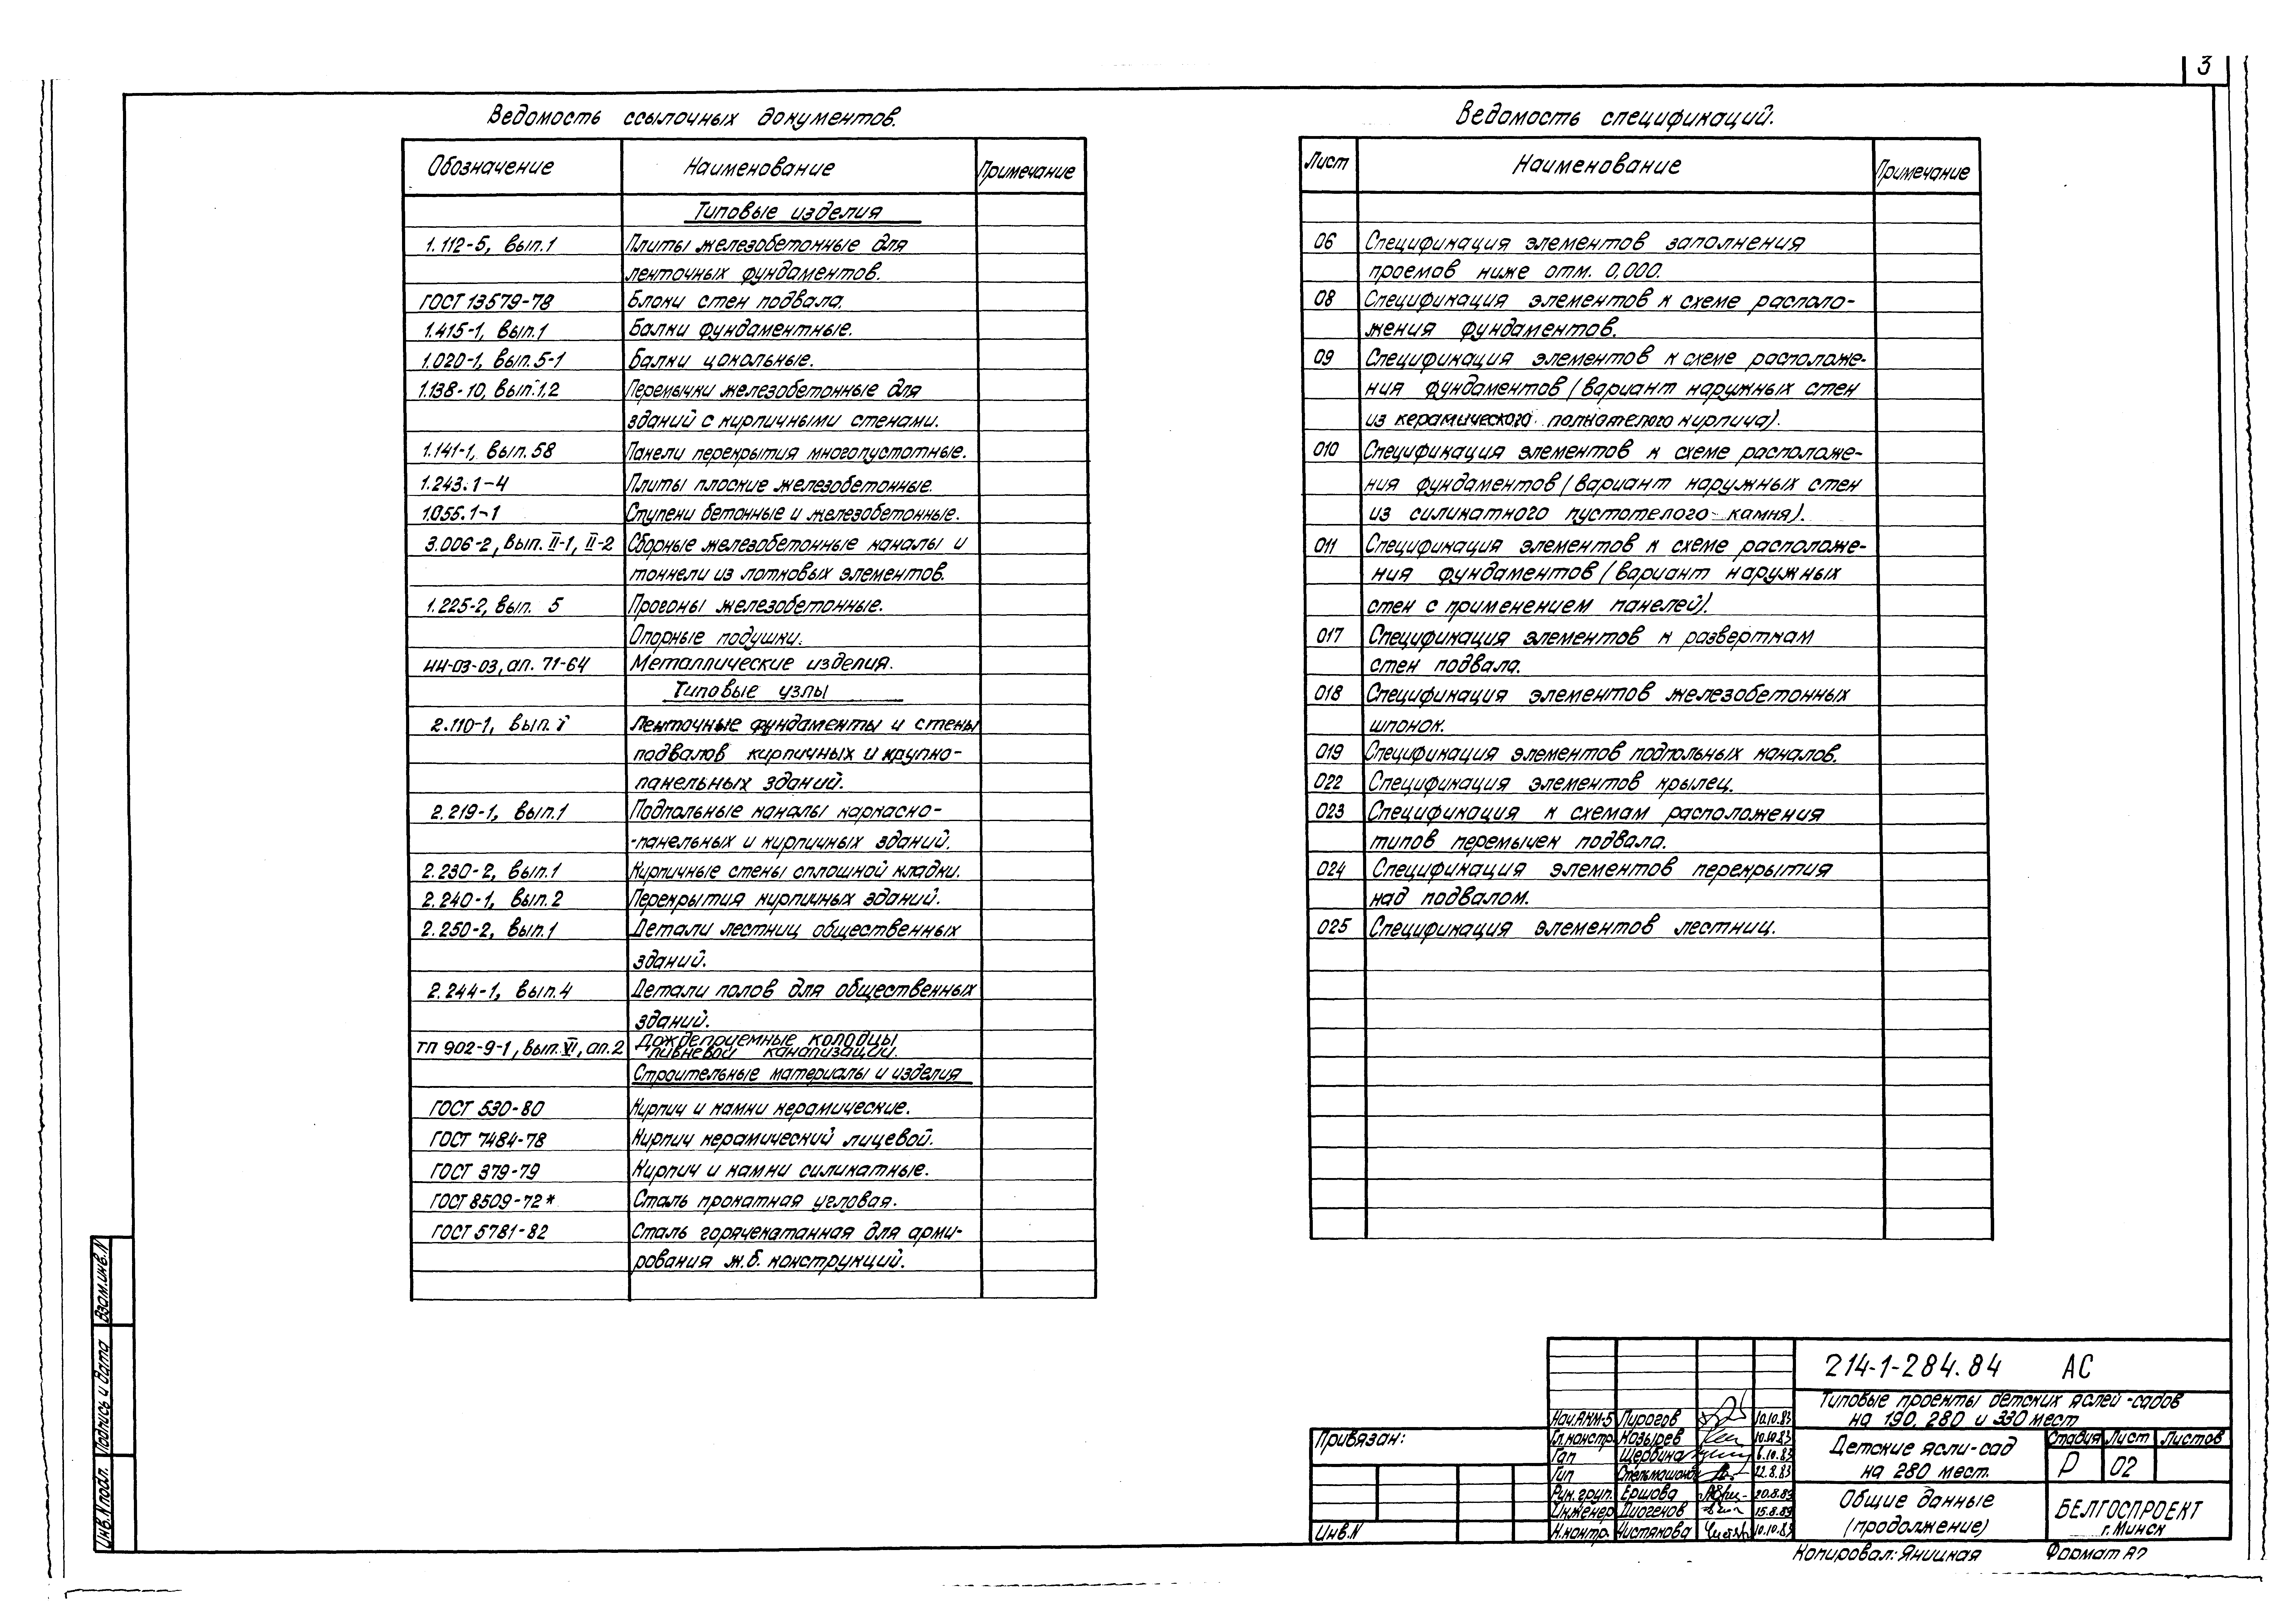 3
Ведомость ссылочных документов.
Обозначение Наименование Примечание
Типовые изделия
1.112-5, вып.1 Плиты железобетонные для
ленточных фундаментов.
ГОСТ 13579-78 Блоки стен подвала.
1.415-1, вып.1 Балки фундаментные.
1.020-1, вып.5-1 Балки цокольные.
1.138-10, вып.1,2 Перемычки железобетонные для
зданий с кирпичными стенами.
1.141-1, вып.58 Панели перекрытия многопустотные.
1.243.1-4 Плиты плоские железобетонные.
1.055.1-1 Ступени бетонные и железобетонные.
3.006-2, вып. II-1, II-2 Сборные железобетонные каналы и
тоннели из лотковых элементов.
1.225-2, вып. 5 Прогоны железобетонные.
Опорные подушки.
ИИ-03-03, ал. 71-64 Металлические изделия.
Типовые узлы
2.110-1, вып. I Ленточные фундаменты и стены
подвалов кирпичных и крупно-
панельных зданий.
2.219-1, вып.1 Подпольные каналы каркасно-
-панельных и кирпичных зданий.
2.230-2, вып.1 Кирпичные стены сплошной кладки.
2.240-1, вып.2 Перекрытия кирпичных зданий.
2.250-2, вып.1 Детали лестниц общественных
зданий.
2.244-1, вып.4 Детали полов для общественных
зданий.
ТП 902-9-1, вып. VI, ал.2 Дождеприемные колодцы
ливневой канализации.
Строительные материалы и изделия
ГОСТ 530-80 Кирпич и камни керамические.
ГОСТ 7484-78 Кирпич керамический лицевой.
ГОСТ 379-79 Кирпич и камни силикатные.
ГОСТ 8509-72* Сталь прокатная угловая.
ГОСТ 5781-82 Сталь горячекатанная для арми-
рования ж.б. конструкций.
Ведомость спецификаций.
Лист Наименование Примечание
06 Спецификация элементов заполнения
проемов ниже отм. 0,000.
08 Спецификация элементов к схеме располо-
жения фундаментов.
09 Спецификация элементов к схеме расположе-
ния фундаментов (вариант наружных стен
из керамического полнотелого кирпича).
010 Спецификация элементов к схеме расположе-
ния фундаментов (вариант наружных стен
из силикатного пустотелого камня).
011 Спецификация элементов к схеме расположе-
ния фундаментов (вариант наружных
стен с применением панелей).
017 Спецификация элементов к разверткам
стен подвала.
018 Спецификация элементов железобетонных
шпонок.
019 Спецификация элементов подпольных каналов.
022 Спецификация элементов крылец.
023 Спецификация к схемам расположения
типов перемычек подвала.
024 Спецификация элементов перекрытия
над подвалом.
025 Спецификация элементов лестниц.
Взам.инв.N
Подпись и дата
Инв.N подл.
Привязан:
Инв.N
Нач.АКМ-5 Пирогов 10.10.83
Гл.констр. Козырев 10.10.83
Гап Щербина 6.10.83
Гип 22.8.83
Рук.груп. Ершова 20.8.83
Инженер Диогенов 15.8.83
Н.контр. Чистякова 10.10.83
214-1-284.84 АС
Типовые проекты детских яслей-садов
на 190, 280 и 330 мест
Детские ясли-сад
на 280 мест.
Стадия Лист Листов
Р 02
Общие данные
(продолжение)
БЕЛГОСПРОЕКТ
г. Минск
Копировал: Яницкая Формат А2